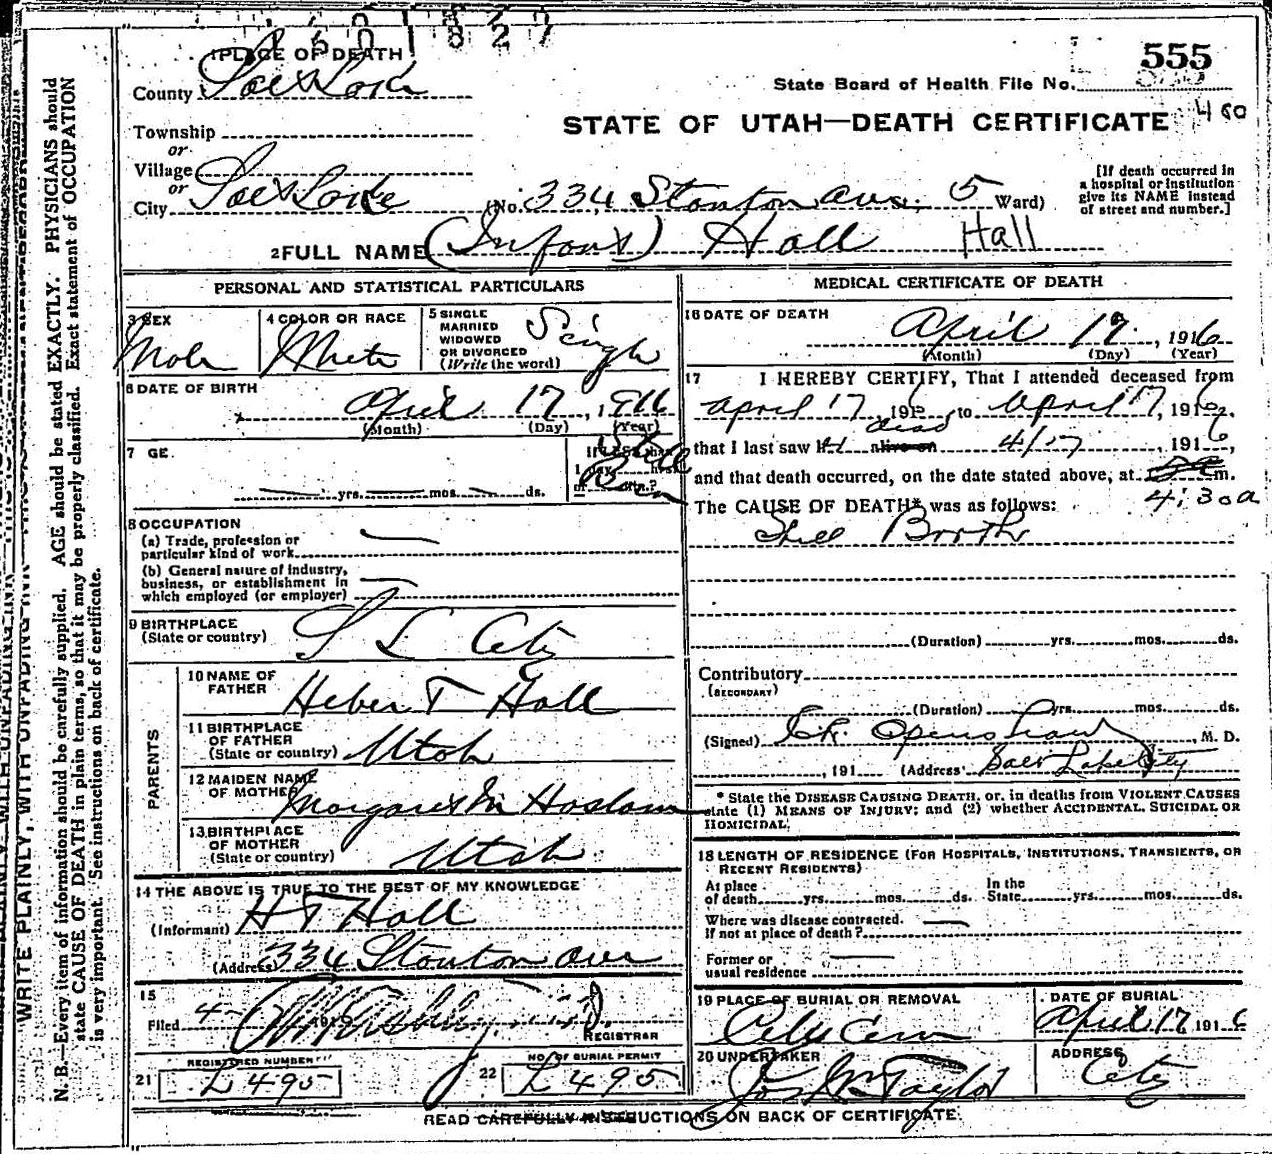 1601827
555
1 PLACE OF DEATH
County Salt Lake
State Board of Health File No.
400
Township
STATE OF UTAH—DEATH CERTIFICATE
or
Village
or
City Salt Lake (No. 334 Stanton ave. 5 Ward)
[If death occurred in
a hospital or institution
give its NAME instead
of street and number.]
2 FULL NAME (Infant) Hall Hall
PERSONAL AND STATISTICAL PARTICULARS
3 SEX
Male
4 COLOR OR RACE
White
5 SINGLE
MARRIED
WIDOWED
OR DIVORCED
(Write the word)
Single
6 DATE OF BIRTH
April 17, 1916
(Month) (Day) (Year)
7 GE.
yrs. mos. ds.
Still
Born
8 OCCUPATION
(a) Trade, profession or
particular kind of work
(b) General nature of industry,
business, or establishment in
which employed (or employer)
9 BIRTHPLACE
(State or country)
S L City
PARENTS
10 NAME OF
FATHER
Heber T Hall
11 BIRTHPLACE
OF FATHER
(State or country)
Utah
12 MAIDEN NAME
OF MOTHER
Margaret M Haslam
13 BIRTHPLACE
OF MOTHER
(State or country)
Utah
14 THE ABOVE IS TRUE TO THE BEST OF MY KNOWLEDGE
(Informant) H T Hall
(Address) 334 Stanton ave
15
Filed 4-
REGISTRAR
21
REGISTERED NUMBER
L495
22
NO. OF BURIAL PERMIT
L495
MEDICAL CERTIFICATE OF DEATH
16 DATE OF DEATH
April 17, 1916
(Month) (Day) (Year)
17 I HEREBY CERTIFY, That I attended deceased from
April 17, 1916 to April 17, 1916,
dead
that I last saw h alive on 4/17, 1916,
and that death occurred, on the date stated above, at m.
4:30a
The CAUSE OF DEATH* was as follows:
Still Birth
(Duration) yrs. mos. ds.
Contributory
(SECONDARY)
(Duration) yrs. mos. ds.
(Signed) Openshaw, M. D.
, 191 (Address) Salt Lake City
* State the DISEASE CAUSING DEATH, or, in deaths from VIOLENT CAUSES
state (1) MEANS OF INJURY; and (2) whether ACCIDENTAL, SUICIDAL OR
HOMICIDAL.
18 LENGTH OF RESIDENCE (FOR HOSPITALS, INSTITUTIONS, TRANSIENTS, OR
RECENT RESIDENTS)
At place
of death yrs. mos. ds.
In the
State yrs. mos. ds.
Where was disease contracted.
If not at place of death?
Former or
usual residence
19 PLACE OF BURIAL OR REMOVAL
City Cem
DATE OF BURIAL
April 17 1916
20 UNDERTAKER
Jos Wm Taylor
ADDRESS
City
READ CAREFULLY INSTRUCTIONS ON BACK OF CERTIFICATE.
WRITE PLAINLY, WITH UNFADING INK
N. B.—Every item of information should be carefully supplied. AGE should be stated EXACTLY. PHYSICIANS should
state CAUSE OF DEATH in plain terms, so that it may be properly classified. Exact statement of OCCUPATION
is very important. See instructions on back of certificate.